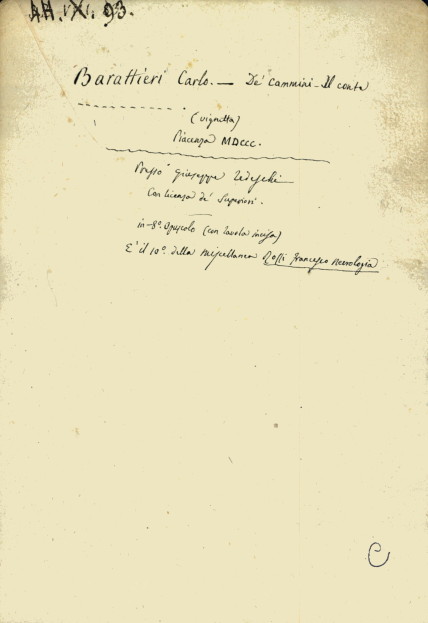 AA. XI. 93.
Barattieri Carlo. — De' Cammini - Il conte
(vignetta)
Piacenza MDCCC.
Presso Giuseppe Tedeschi
Con licenza de' Superiori.
in-8º. Opuscolo (con tavola incisa)
E' il 10º. della Miscellanea Rossi Francesco Necrologia
C